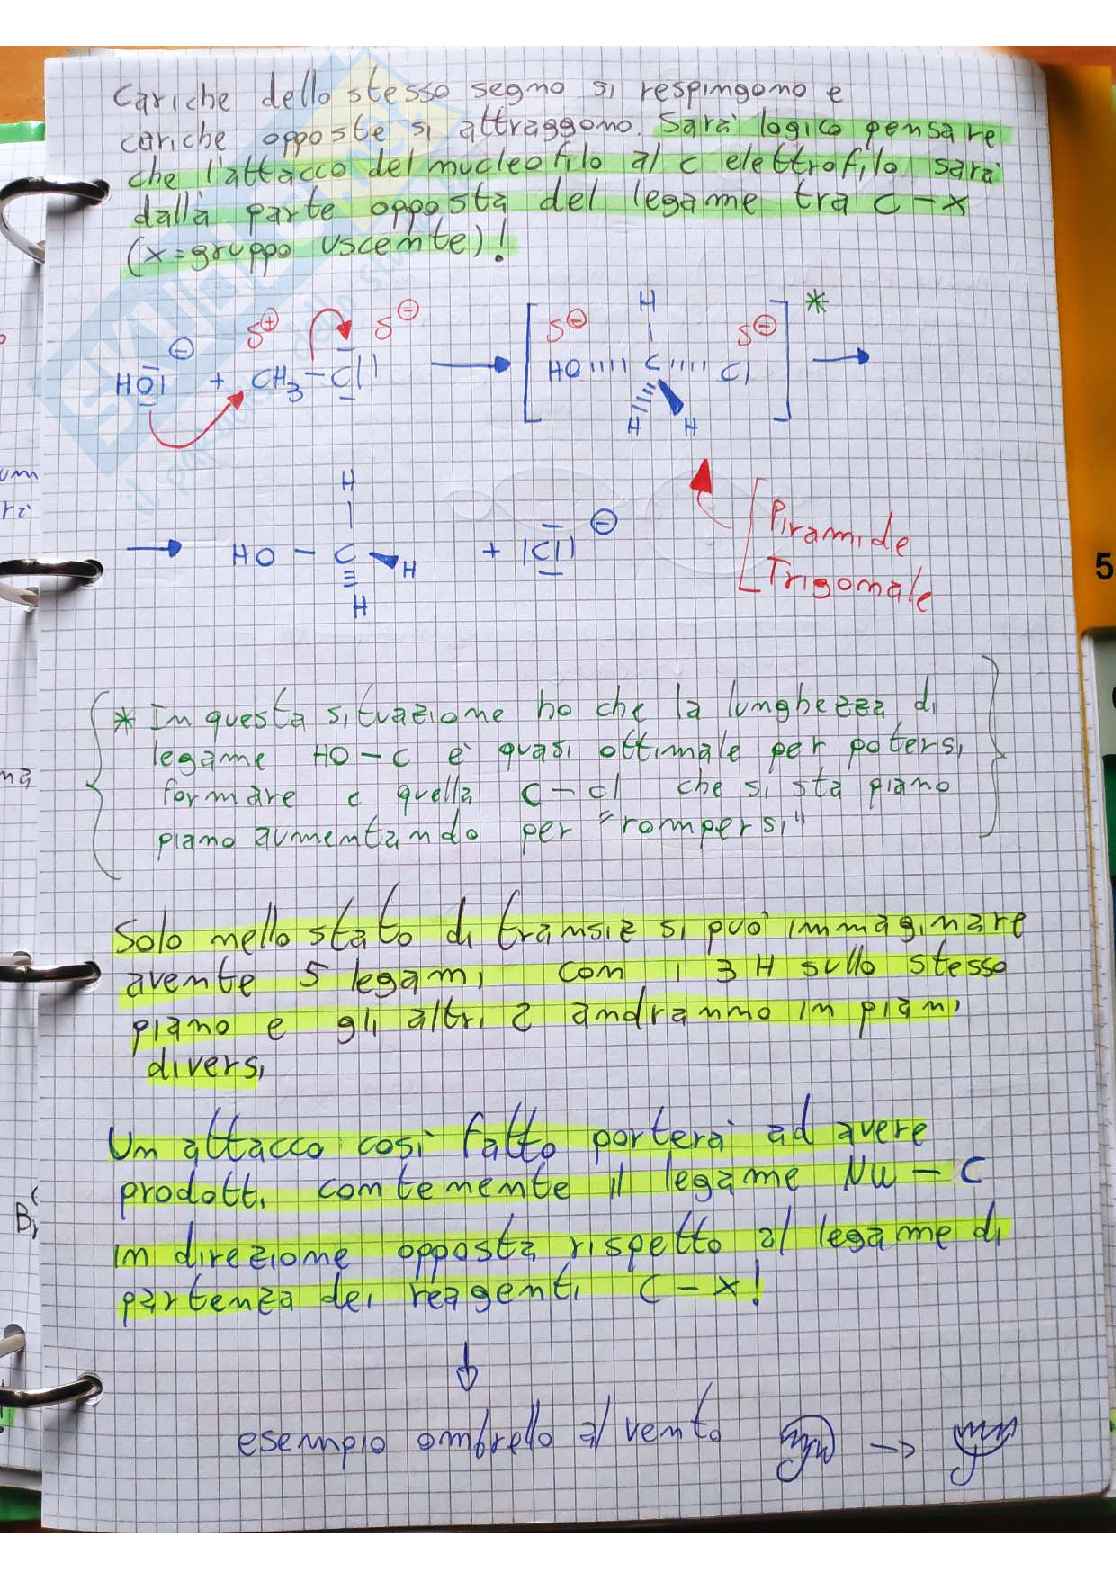 Cariche dello stesso segno si respingono e
cariche opposte si attraggono. Sarà logico pensare
che l'attacco del nucleofilo al C elettrofilo sarà
dalla parte opposta del legame tra C-X
(X=gruppo uscente)!
δ⊕ δ⊖ δ⊖ δ⊖ H *
HO ⊖ + CH3-Cl → [HO C Cl] →
H H
H
→ HO - C H + |Cl| ⊖
H
Piramide
Trigonale
* In questa situazione ho che la lunghezza di
legame HO-C è quasi ottimale per potersi
formare e quella C-Cl che si sta piano
piano aumentando per "rompersi"
Solo nello stato di transiz si può immaginare
avente 5 legami con i 3 H sullo stesso
piano e gli altri 2 andranno in piani
diversi
Un attacco così fatto porterà ad avere
prodotti contenente il legame Nu-C
in direzione opposta rispetto al legame di
partenza dei reagenti C-X!
↓
esempio ombrello al vento →
5